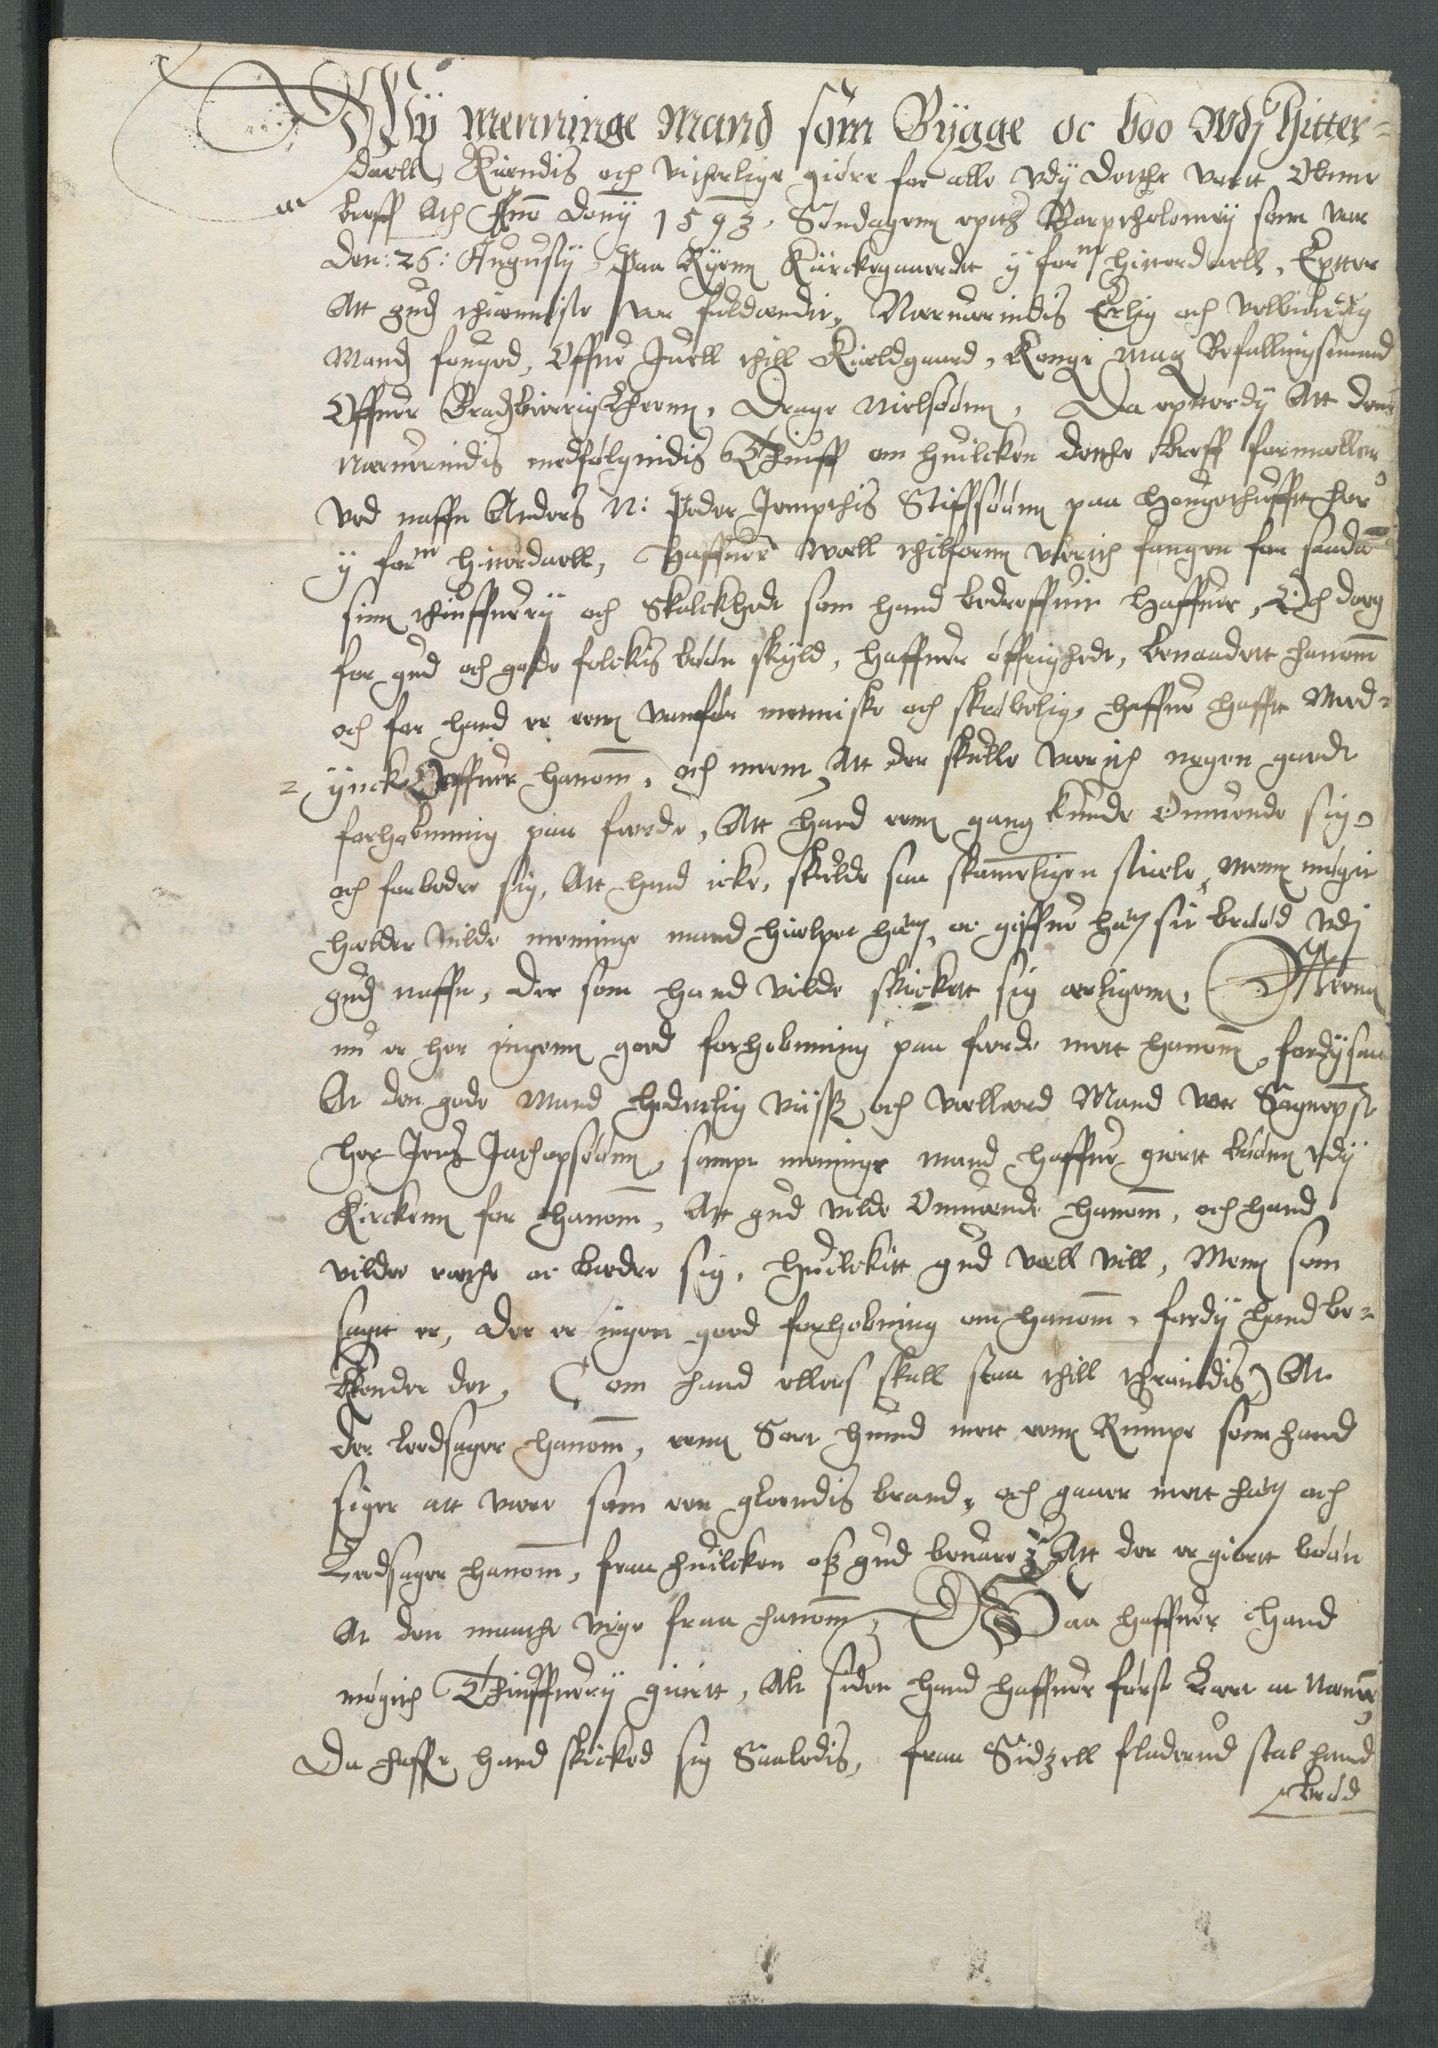 Wij menninge Mand som Bygge oc boo Wdj Hitter=
daell, Kiendis och vitterlige giøre for alle vdj dette vort Obne
breff Ath Anno Domj 1593. Søndagenn epter Bartholomej som var
den: 26: Augustij Paa Ryenn Kirckegaardt y forne Hitterdaell, Epter
Att gudz thienniste var fuldendit, Neruerindis Erlig och velbiurdig
Mand fouged, Offue Juell thill Kieldgaard, Konge Maytz Befallingsmand
Offuer Bradzbierrig Lhenn, Drage Nielsøønn, Da epterdj Att denne
Neruerindis medfølgindis Thiuff om huilcken dette breff formeller
ved naffn Anders N: Peder Jempthis Stiffsøønn paa Haugethuefft her
y forne Hitterdaell, Haffuer well thilforn verith fangen for saadan
sinn thiuffuerij och Skalckhedt som hand bedreffuit haffuer, Och dog
for gud och gode folckis bøøn skyld, haffuer øffrighedt, benaadett hannom
och for hand er enn vanfør menniske och skrøbelig, haffue hafft Med=
=ynck Offuer hannom, och meent Att der skulle verith nogen goedt
forhobning paa ferde, Att hand enn gang kunde Omuende sig
och forbedre sig, Att hand icke skulde saa skammeligen stiele, menn møgit
helder vilde meninge mand hielpet ham, oc giffue ham sit brøød vdj
gudz naffn, der som hand vilde skickett sig erligenn, Menn
nu er her ingenn goed forhobning paa ferde mett hannom, fordj saa
At den gode Mand Hederlig viiss och vellerd Mand vor Sogneprest
her Jens Jachopsøønn, sampt meninge mand haffuer giørtt bøønn vdj
Kirckenn for hannom, Att gud vilde Omuende hannom, och hand
vilde rette oc bedre sig, huilckit gud vell vill, Menn som
sagtt er, der er ingen goed forhobning om hannom, fordj hand be=
kender det, (om hand ellers skall staa thill throindis) At
der ledsager hannom, enn Sort hund mett enn Rumpe som hand
siger att vere som enn gloendis brand, och gaaer mett ham och
Ledsager hannom, fraa huilcken oss gud beuare, Att der er giørtt bøøn
At den maatte vige fraa hannom, Saa haffuer hand
møgith Thiuffuerij giørtt, Alt siden hand haffuer først Lert at Nemme
Da haffr hand skicked sig Saaledis, fraa Sidzell fladerud stal hand
brød